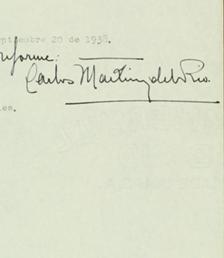 eptiembre 20 de 1938.
nforme:
Carlos Martinez del Rio.
es.